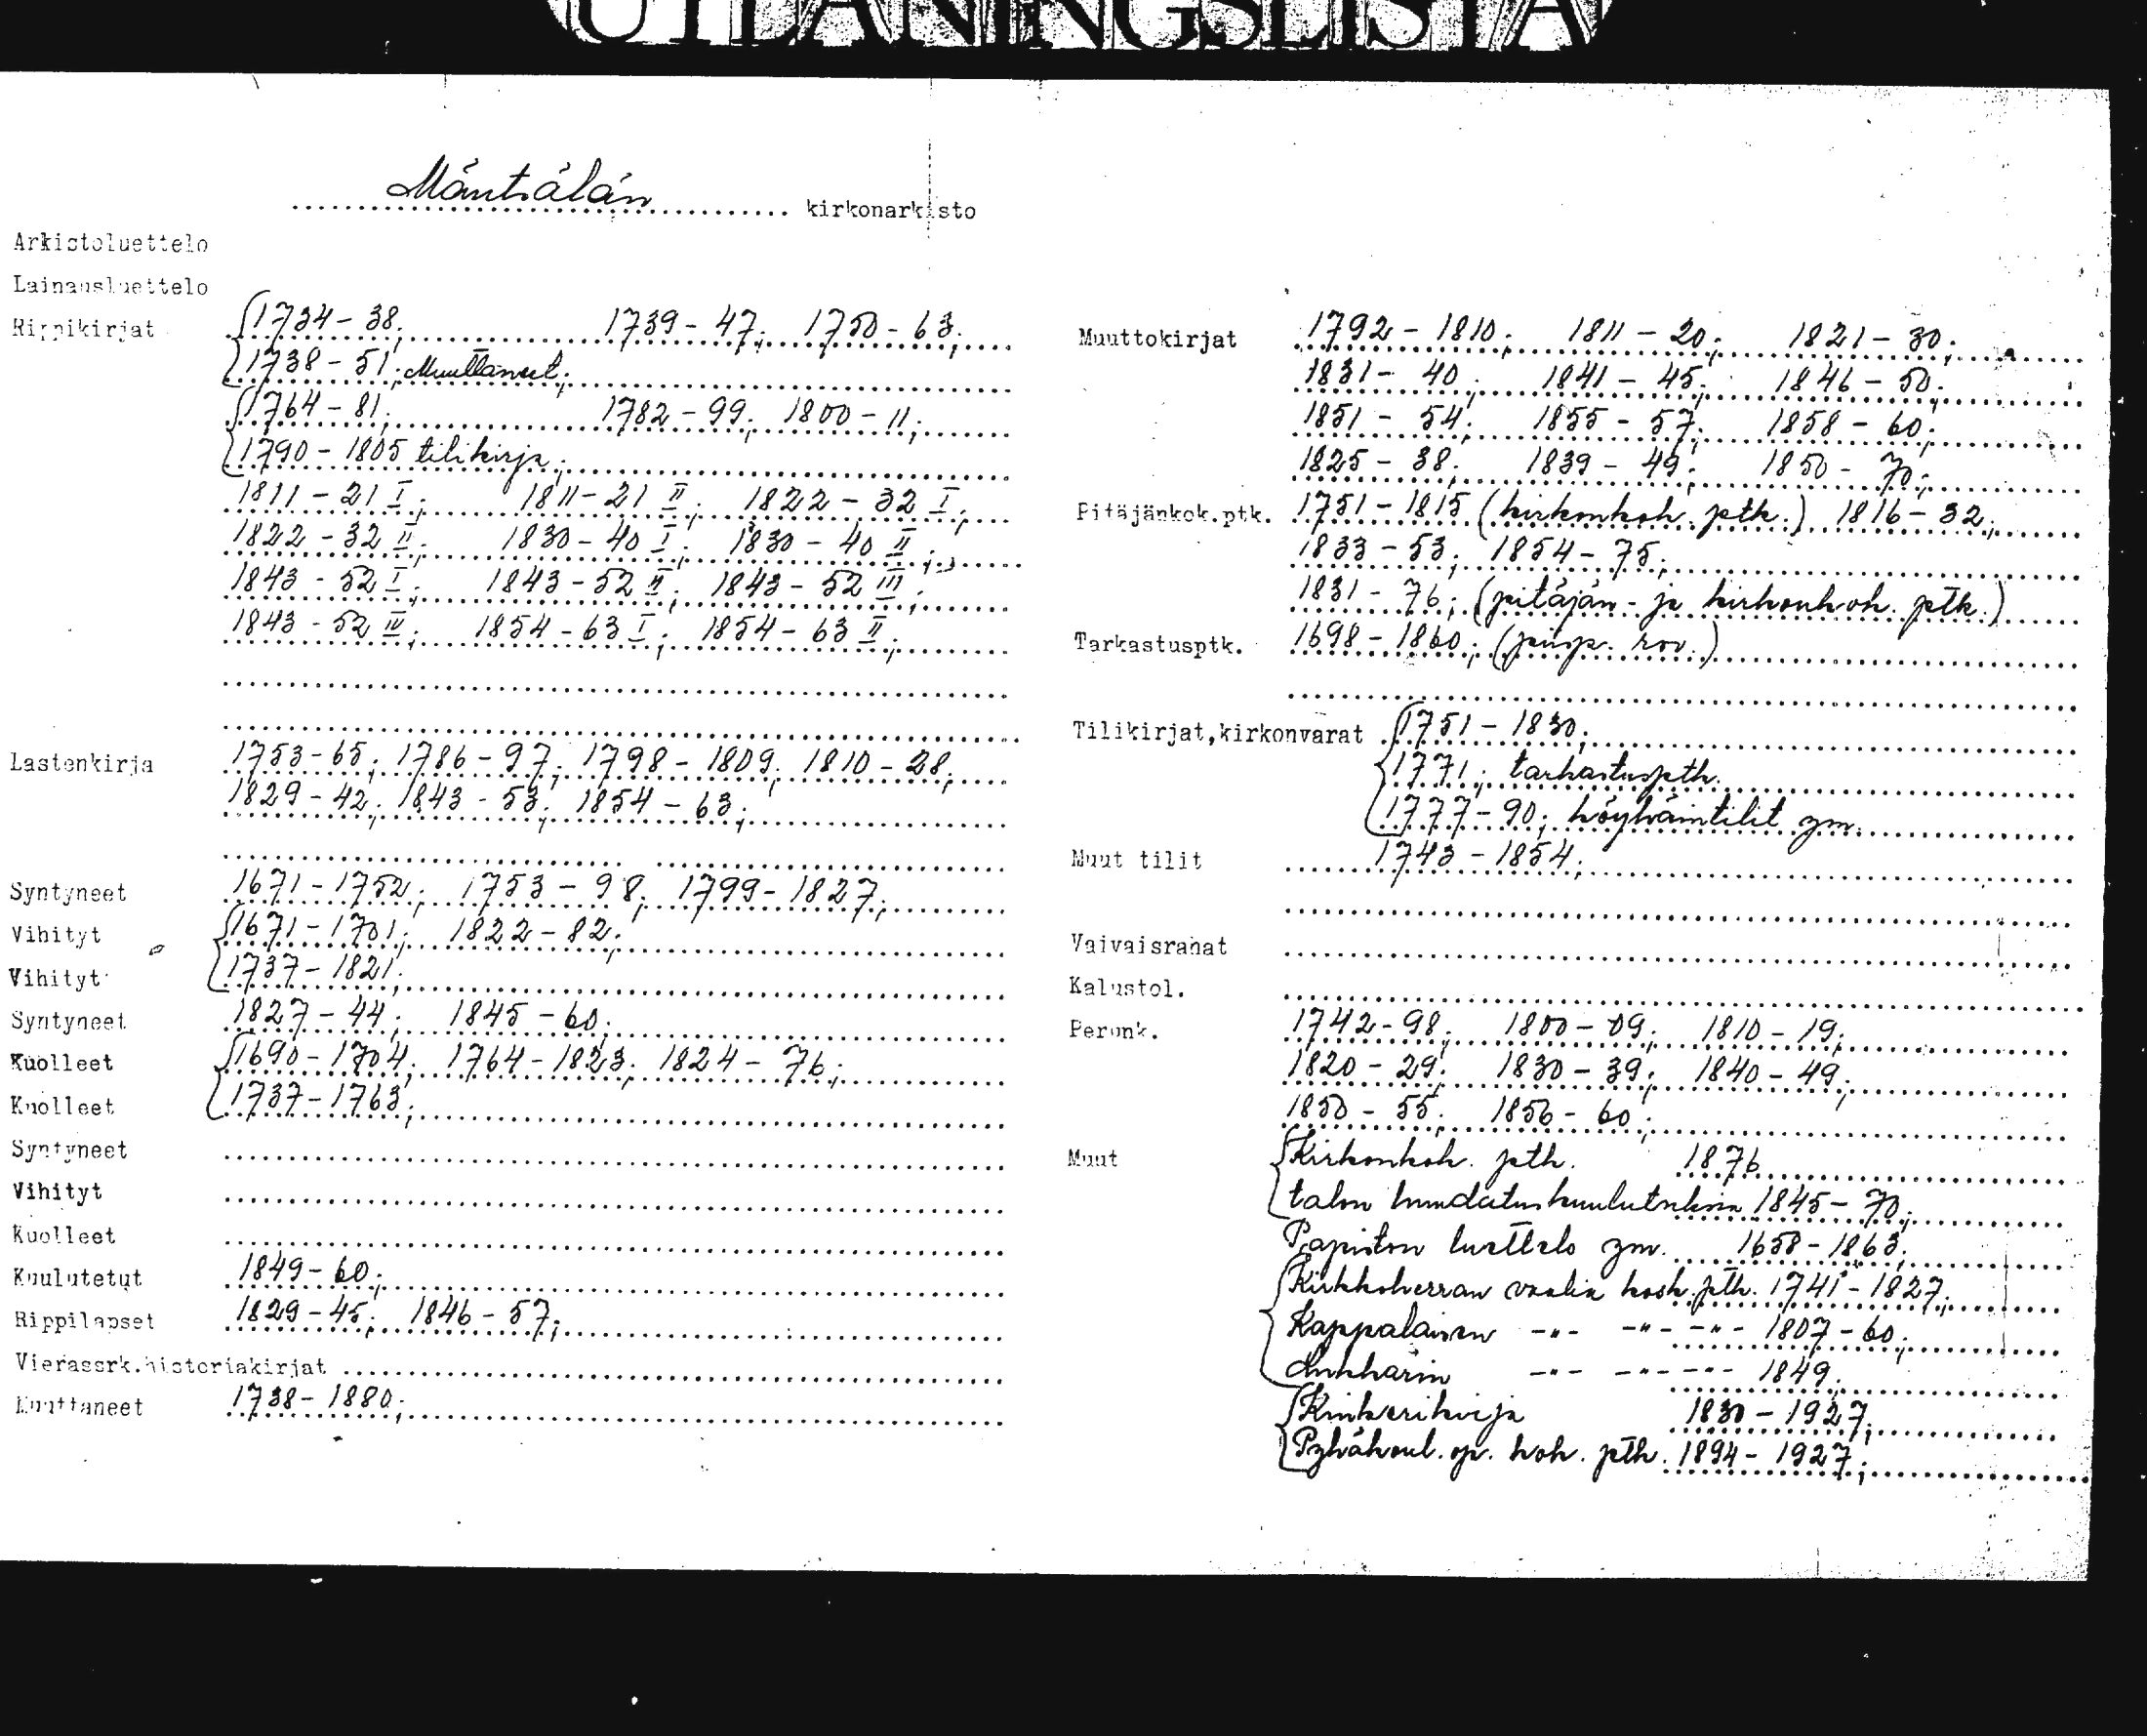 UTLÅNINGSLISTA
Mäntsälän kirkonarkisto
Arkistoluettelo
Lainausluettelo
Rippikirjat 1734-38; 1739-47; 1750-63;
1738-51; Muuttaneet;
1764-81; 1782-99; 1800-11;
1790-1805 tilikirja;
1811-21 I; 1811-21 II; 1822-32 I;
1822-32 II; 1830-40 I; 1830-40 II;
1843-52 I; 1843-52 II; 1843-52 III;
1843-52 IV; 1854-63 I; 1854-63 II;
Lastenkirja 1753-65; 1786-97; 1798-1809; 1810-28;
1829-42; 1843-53; 1854-63;
Syntyneet 1671-1752; 1753-98; 1799-1827;
Vihityt 1671-1701; 1822-82;
Vihityt 1737-1821;
Syntyneet 1827-44; 1845-60;
Kuolleet 1690-1704; 1764-1823; 1824-76;
Kuolleet 1737-1763;
Syntyneet
Vihityt
Kuolleet
Kuulutetut 1849-60;
Rippilapset 1829-45; 1846-57;
Vierassrk.historiakirjat
Muuttaneet 1738-1880;
Muuttokirjat 1792-1810; 1811-20; 1821-30;
1831-40; 1841-45; 1846-50;
1851-54; 1855-57; 1858-60;
1825-38; 1839-49; 1850-70;
Pitäjänkok.ptk. 1751-1815 (kirkonkok. ptk.) 1816-32;
1833-53; 1854-75;
1831-76; (pitäjän- ja kirkonkok. ptk.)
Tarkastusptk. 1698-1860; (piisp. rov.)
Tilikirjat,kirkonvarat 1751-1830;
1771; tarkastusptk.
1777-90; köyhäintilit ym.
Muut tilit 1743-1854;
Vaivaisrahat
Kalustol.
Perunk. 1742-98; 1800-09; 1810-19;
1820-29; 1830-39; 1840-49;
1850-55; 1856-60;
Muut Kirkonkok. ptk. 1876
talon kuulutuksia 1845-70;
Papiston luettelo ym. 1658-1863;
Kirkkoherran vaalin kosk. ptk. 1741-1827;
Kappalaisen -"- -"- -"- 1807-60;
Lukkarin -"- -"- -"- 1849;
Kinkerikirja 1830-1927;
Pyhäkoul. op. kok. ptk. 1894-1927;